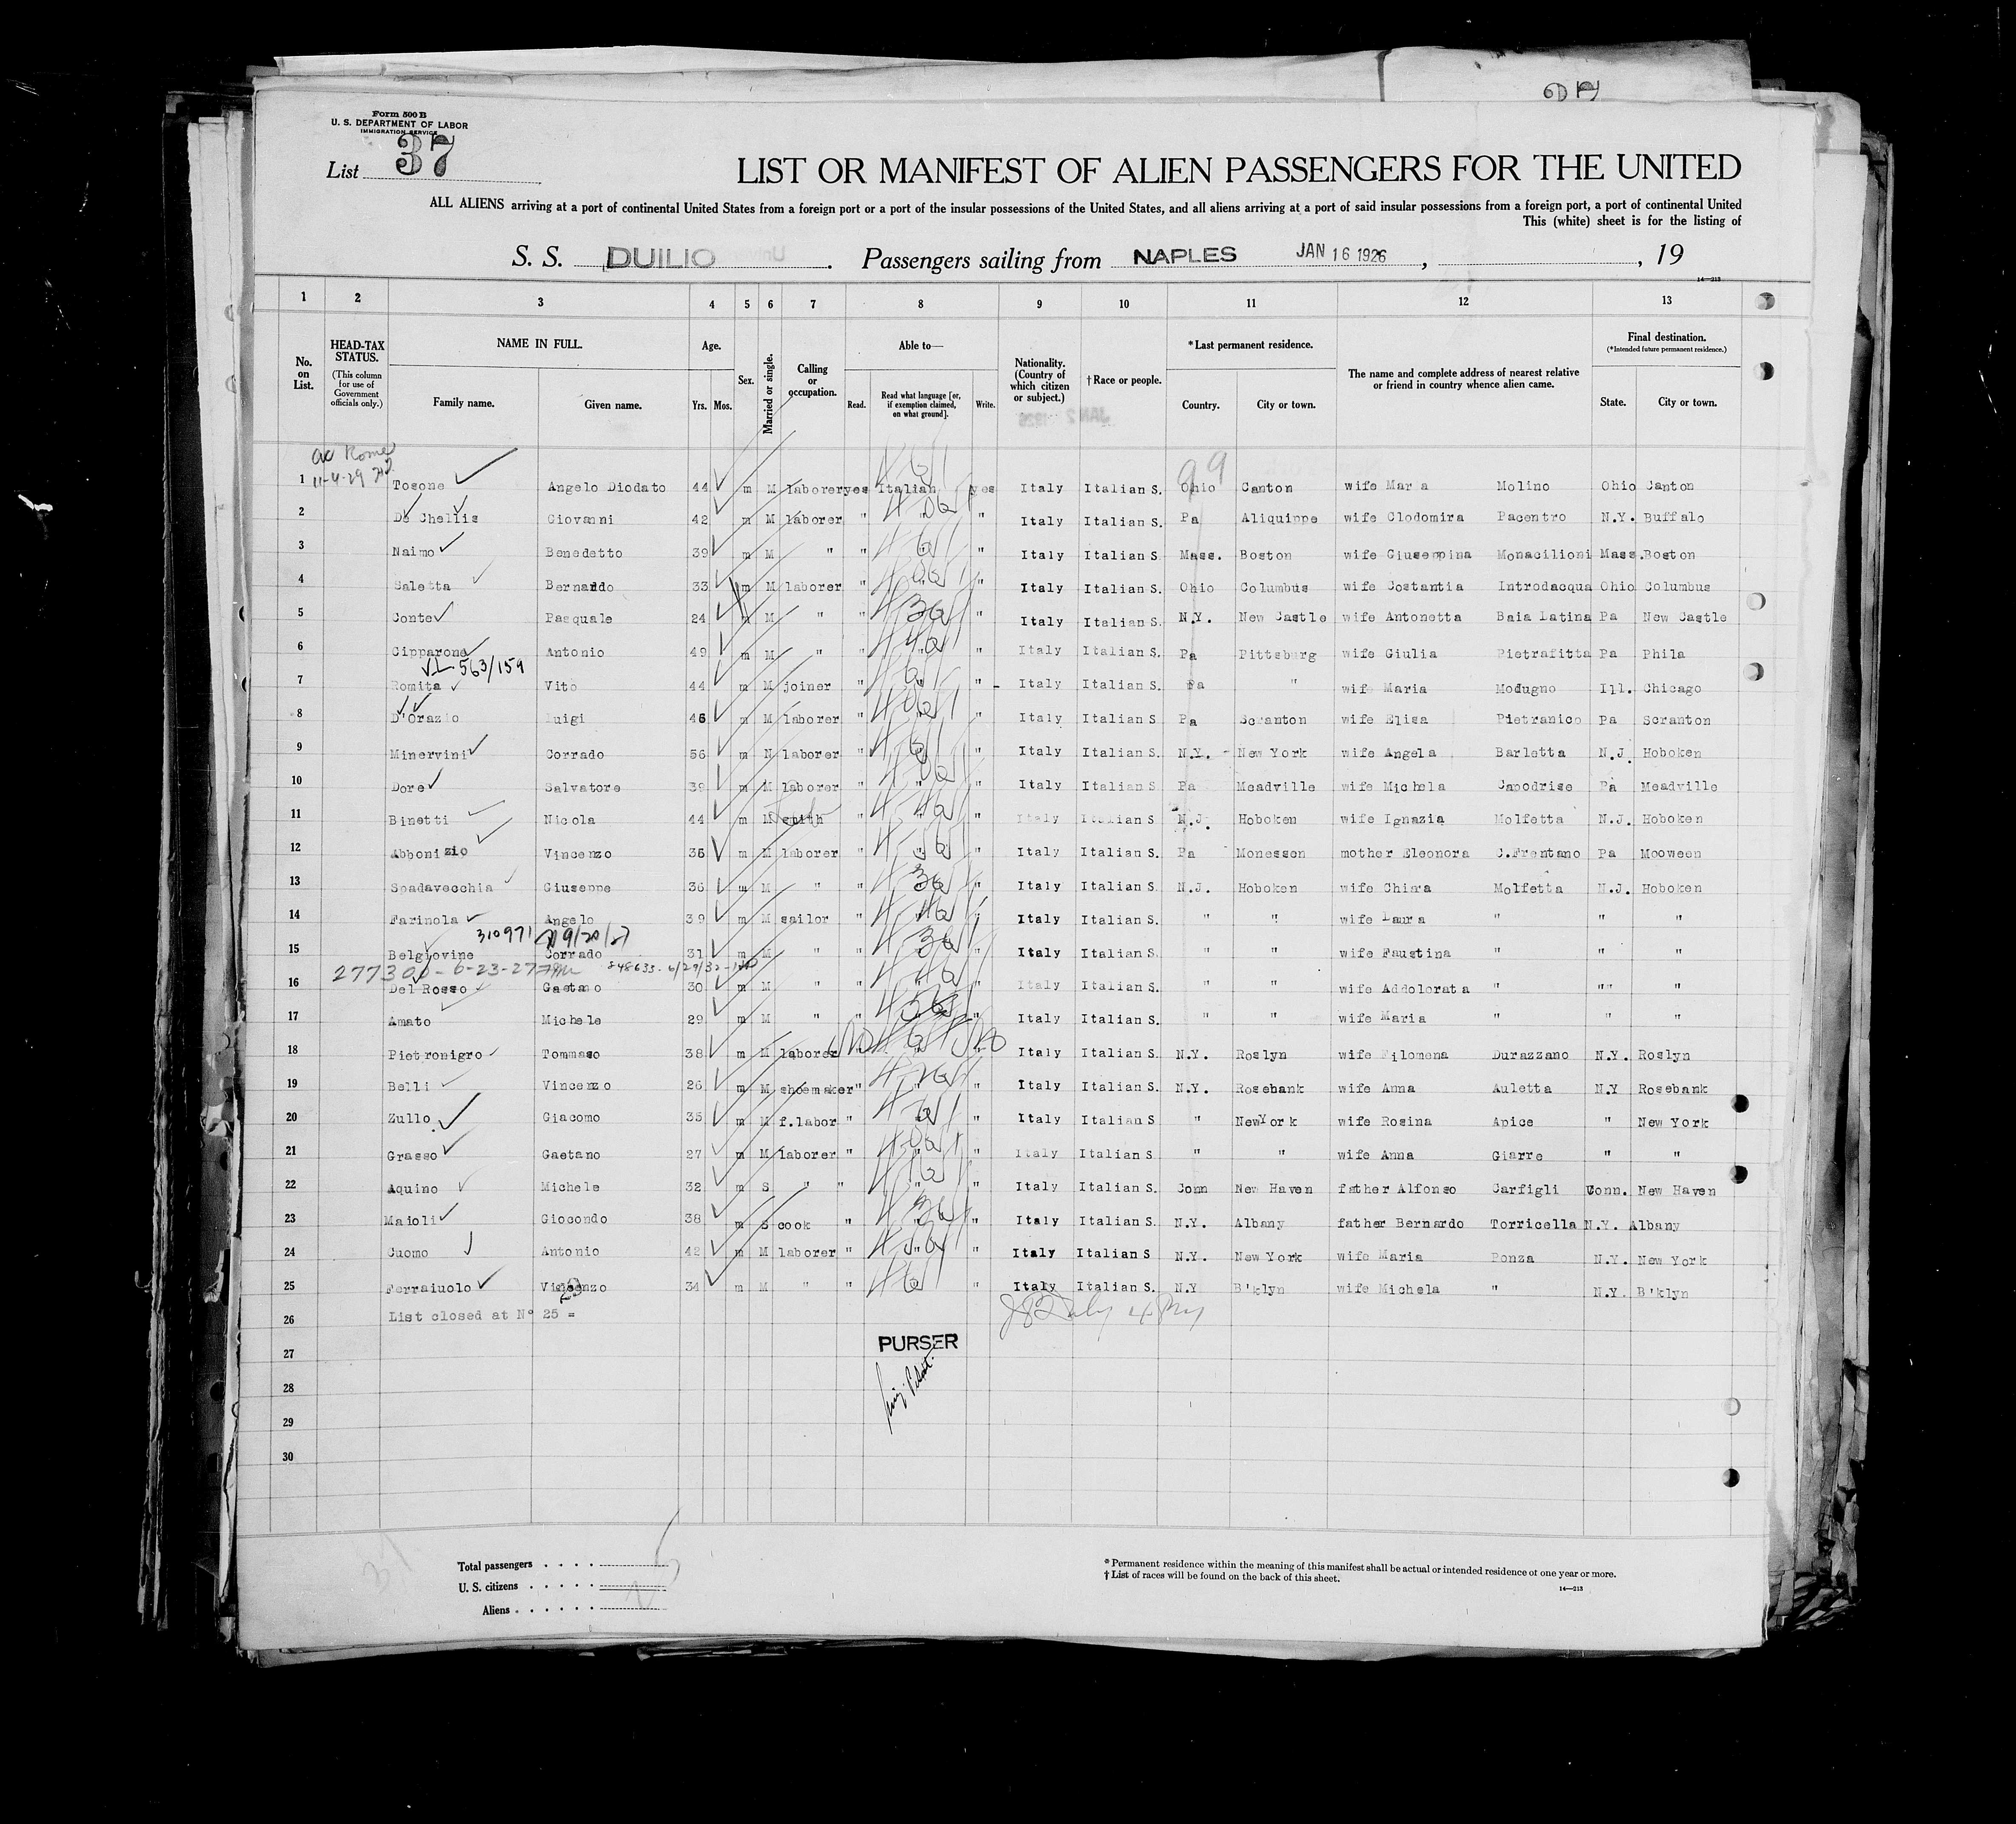 Form 500 B
U. S. DEPARTMENT OF LABOR
IMMIGRATION SERVICE
List 37
LIST OR MANIFEST OF ALIEN PASSENGERS FOR THE UNITED
ALL ALIENS arriving at a port of continental United States from a foreign port or a port of the insular possessions of the United States, and all aliens arriving at a port of said insular possessions from a foreign port, a port of continental United
This (white) sheet is for the listing of
S. S. DUILIO. Passengers sailing from NAPLES JAN 16 1926, , 19
14—213
1 2 3 4 5 6 7 8 9 10 11 12 13
No. on List.
HEAD-TAX STATUS.
(This column for use of Government officials only.)
NAME IN FULL.
Family name. Given name.
Age.
Yrs. Mos.
Sex.
Married or single.
Calling or occupation.
Able to—
Read. Read what language [or, if exemption claimed, on what ground]. Write.
Nationality. (Country of which citizen or subject.)
† Race or people.
* Last permanent residence.
Country. City or town.
The name and complete address of nearest relative or friend in country whence alien came.
Final destination.
(* Intended future permanent residence.)
State. City or town.
Rome
11-4-29
99
1 Tosone Angelo Diodato 44 m M laborer yes Italian yes Italy Italian S. Ohio Canton wife Mar a Molino Ohio Canton
2 De Chellis Giovanni 42 m M laborer " " " Italy Italian S. Pa Aliquippe wife Clodomira Pacentro N.Y. Buffalo
3 Naimo Benedetto 39 m M " " " " Italy Italian S. Mass. Boston wife Giuseppina Monacilioni Mass. Boston
4 Saletta Bernardo 33 m M laborer " " " Italy Italian S. Ohio Columbus wife Costantia Introdacqua Ohio Columbus
5 Conte Pasquale 24 m M " " " " Italy Italian S. N.Y. New Castle wife Antonetta Baia Latina Pa New Castle
6 Cipparone Antonio 49 m M " " " " Italy Italian S. Pa Pittsburg wife Giulia Pietrafitta Pa Phila
VL 563/159
7 Romita Vito 44 m M joiner " " " Italy Italian S. Pa " wife Maria Modugno Ill. Chicago
8 D'Orazio Luigi 46 m M laborer " " " Italy Italian S Pa Scranton wife Elisa Pietranico Pa Scranton
9 Minervini Corrado 56 m M laborer " " " Italy Italian S. N.Y. New York wife Angela Barletta N.J. Hoboken
10 Dore Salvatore 39 m M laborer " " " Italy Italian S. Pa Meadville wife Michela Capodrise Pa Meadville
11 Binetti Nicola 44 m M smith " " " Italy Italian S N.J. Hoboken wife Ignazia Molfetta N.J. Hoboken
12 Abbonizio Vincenzo 36 m M laborer " " " Italy Italian S. Pa Monessen mother Eleonora C.Frentano Pa Mooween
13 Spadavecchia Giuseppe 36 m M " " " " Italy Italian S. N.J. Hoboken wife Chiara Molfetta N.J. Hoboken
14 Farinola Angelo 39 m M sailor " " " Italy Italian S. " " wife Laura " " "
310971 9/20/27
15 Belgiovine Corrado 31 m M " " " " Italy Italian S. " " wife Faustina " " "
277300 - 6-23-27 848633 - 6/29/32
16 Del Rosso Gaetano 30 m M " " " " Italy Italian S. " " wife Addolorata " "" "
17 Amato Michele 29 m M " " " " Italy Italian S. " " wife Maria " " "
18 Pietronigro Tommaso 38 m M laborer No " " No Italy Italian S. N.Y. Roslyn wife Filomena Durazzano N.Y. Roslyn
19 Belli Vincenzo 26 m M shoemaker " " " Italy Italian S. N.Y. Rosebank wife Anna Auletta N.Y Rosebank
20 Zullo Giacomo 35 m M f.labor " " " Italy Italian S " NewYork wife Rosina Apice " New York
21 Grasso Gaetano 27 m M laborer " " " Italy Italian S " " wife Anna Giarre " "
22 Aquino Michele 32 m S " " " " Italy Italian S. Conn New Haven father Alfonso Carfigli Conn. New Haven
23 Maioli Giocondo 38 m S cook " " " Italy Italian S. N.Y. Albany father Bernardo Torricella N.Y. Albany
24 Cuomo Antonio 42 m M laborer " " " Italy Italian S N.Y. New York wife Maria Ponza N.Y. New York
25 Ferraiuolo Vincenzo 34 m M " " " Italy Italian S. N.Y B'klyn wife Michela " N.Y. B'klyn
26 List closed at N° 25 =
PURSER
27
28
29
30
Total passengers
U. S. citizens
Aliens
* Permanent residence within the meaning of this manifest shall be actual or intended residence of one year or more.
† List of races will be found on the back of this sheet.
14—213